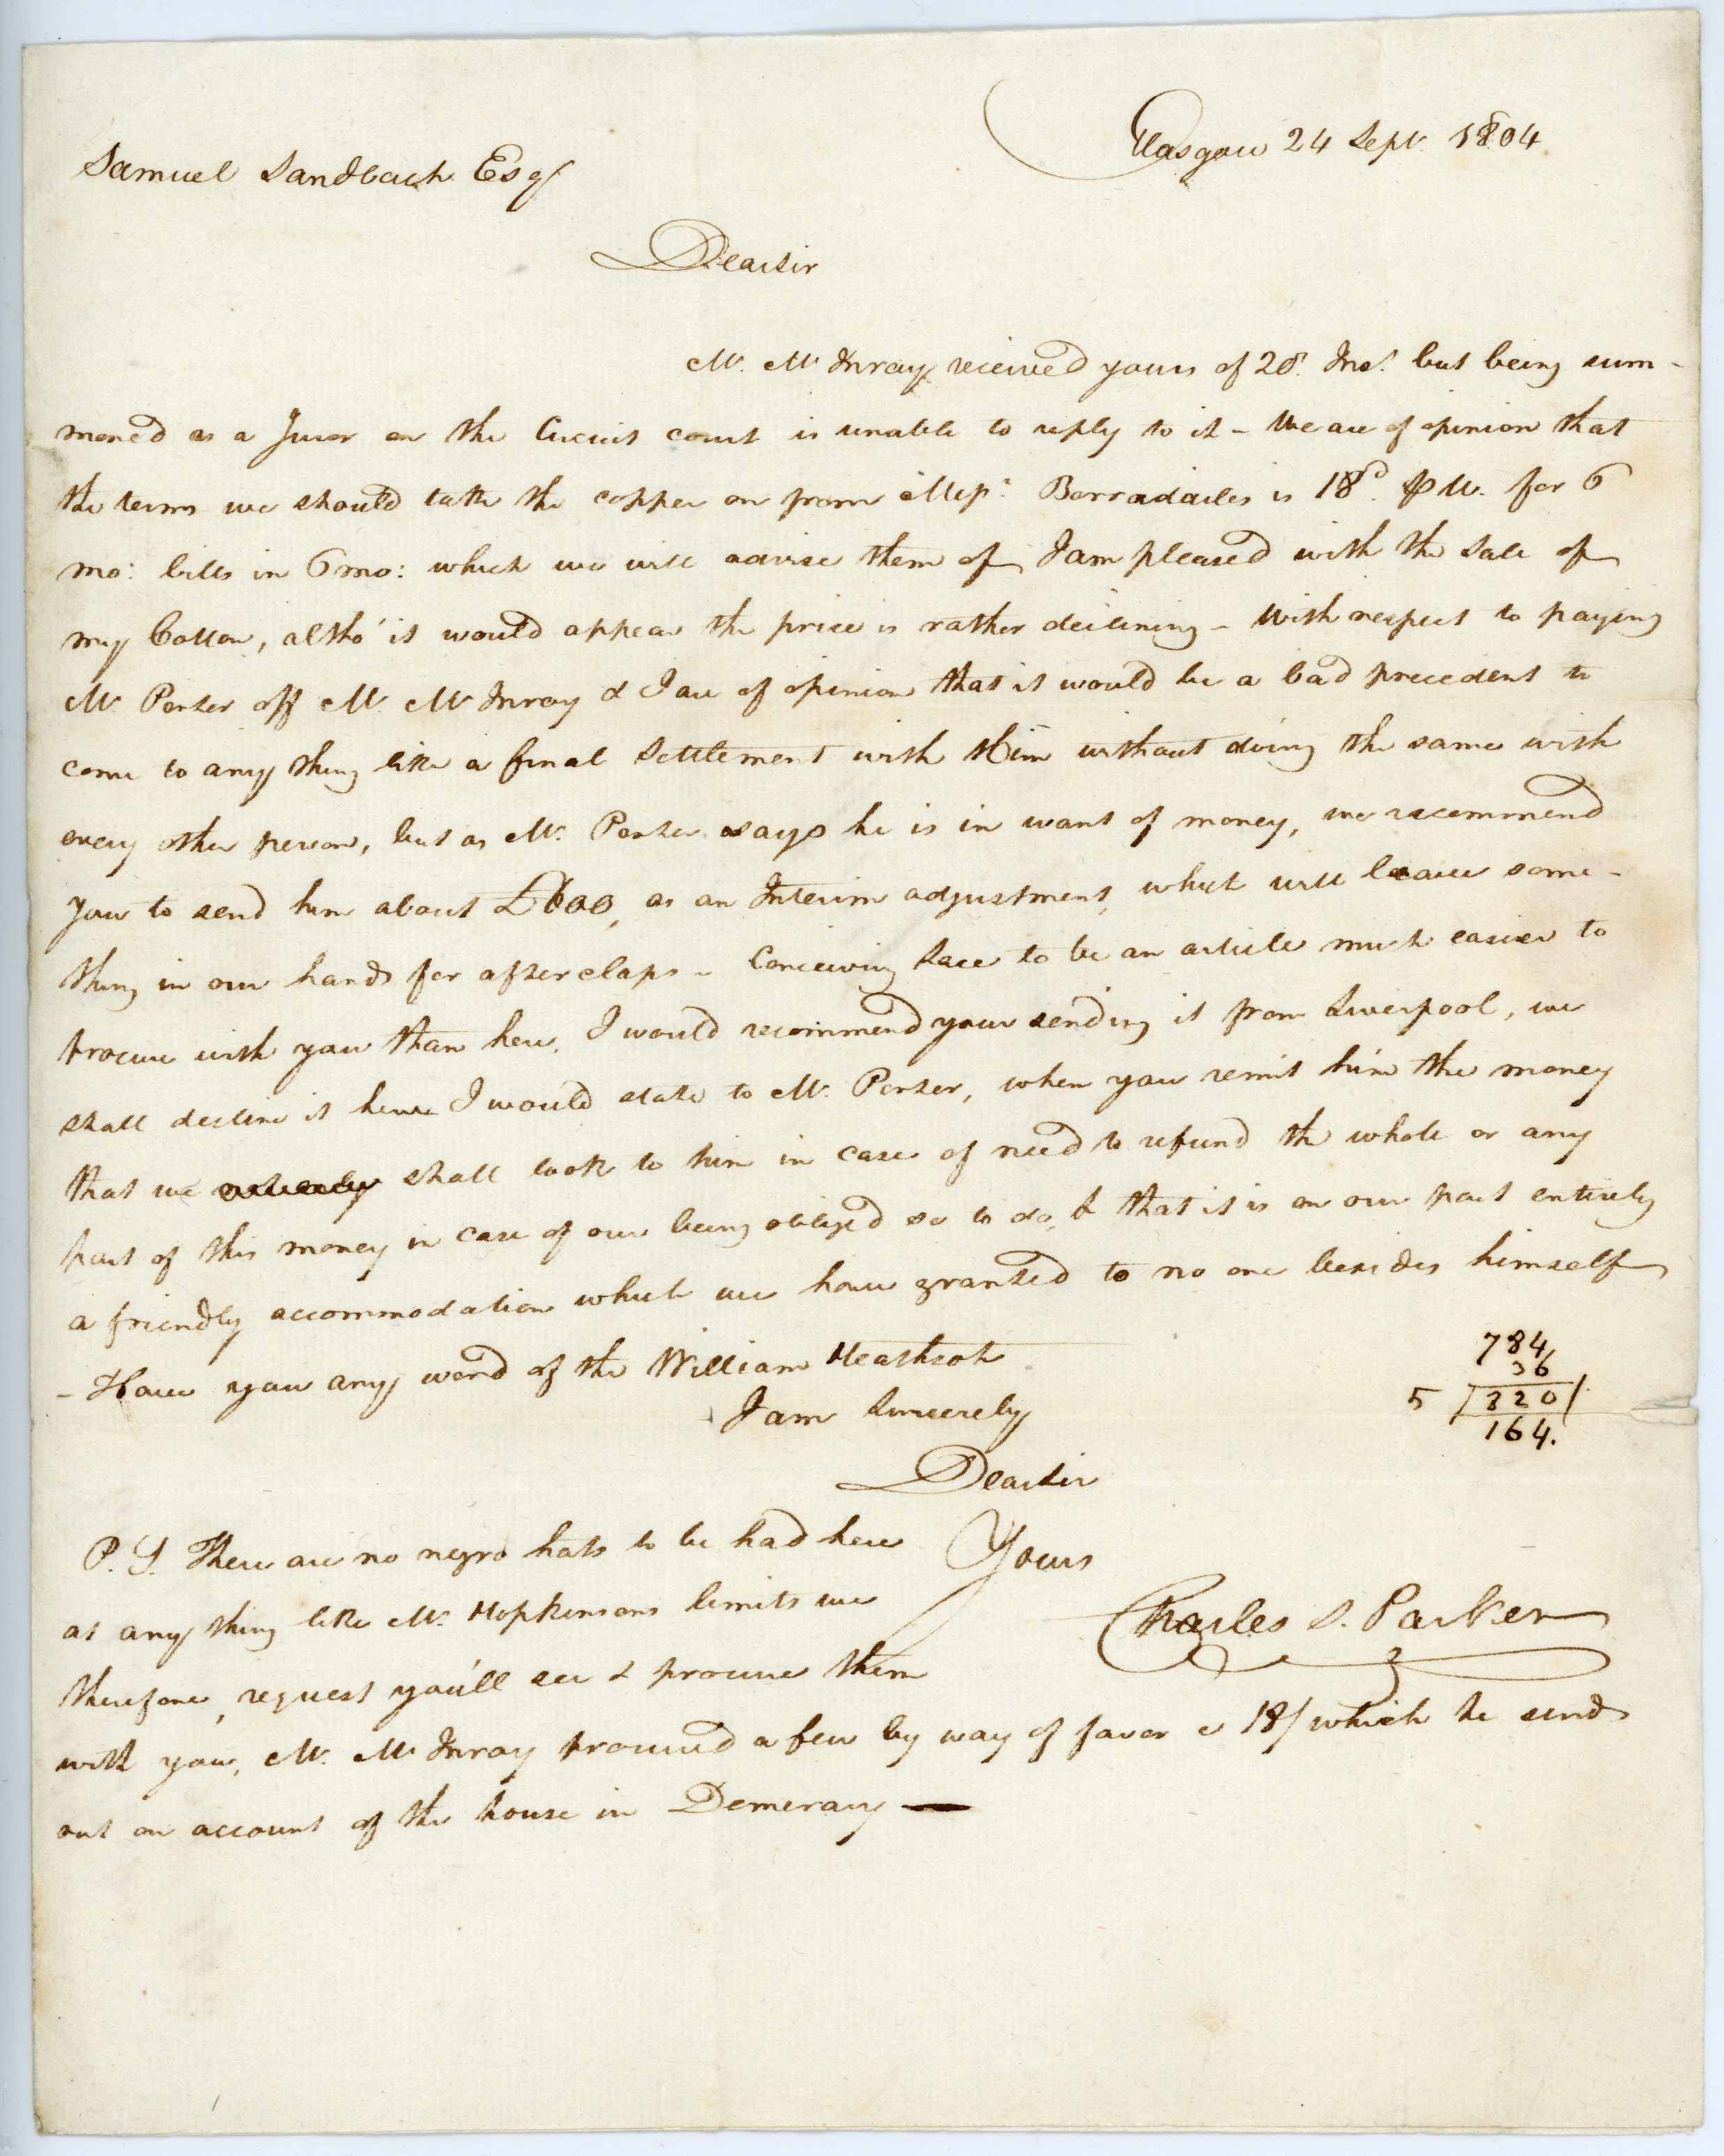 Glasgow 24 Sept. 1804.
Samuel Sandbach Esqr
Dear Sir
Mr. McInroy received yours of 20. Inst. but being sum-
moned as a Juror on the Circuit court is unable to reply to it - We are of opinion that
the terms we should take the copper on from Messrs. Borradailes is 18d. ℔ lb. for 6
mo: bills in 6 mo: which we will advise them of I am pleased with the Sale of
my Cotton, altho' it would appear the price is rather declining - With respect to paying
Mr. Porter off Mr. McInroy & I are of opinion that it would be a bad precedent to
come to any thing like a final Settlement with him without doing the same with
every other person, but as Mr. Porter says he is in want of money, we recommend
you to send him about £600, as an Interim adjustment, which will leave some-
thing in our hands for afterclaps - Conceiving Lace to be an article much easier to
procure with you than here, I would recommend your sending it from Liverpool, we
shall decline it here I would state to Mr. Porter, when you remit him the money
that we shall look to him in case of need to refund the whole or any
part of this money in case of our being obliged so to do, & that it is on our part entirely
a friendly accommodation which we have granted to no one besides himself
- Have you any word of the William Heathcote
784
36
5 / 820 /
164.
I am Sincerely
Dear Sir
Yours
Charles S. Parker
P.S. There are no negro hats to be had here
at any thing like Mr. Hopkinsons limits we
therefore, request you'll see & procure them
with you, Mr. McInroy procured a few by way of favor @ 18/ which he sends
out on account of the house in Demerary —